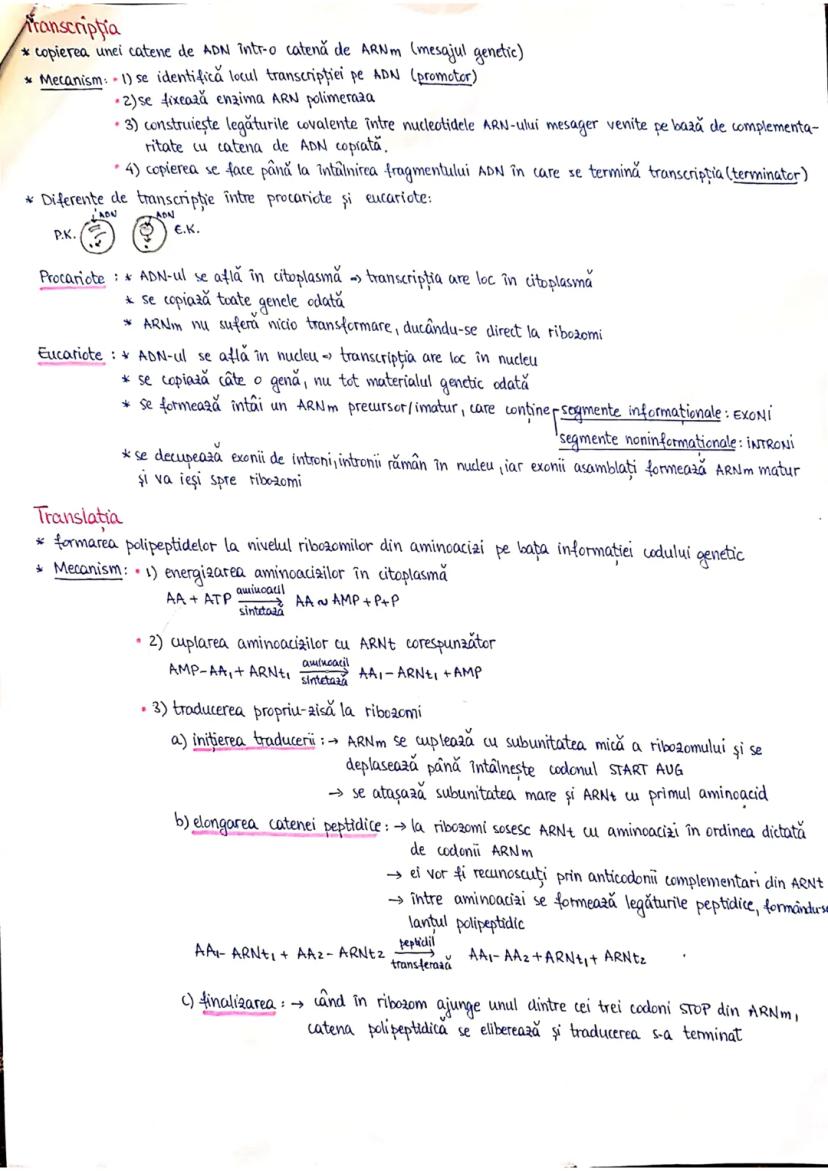 Transcripția
* copierea unei catene de ADN într-o catenă de ARNm (mesajul genetic)
* Mecanism: • 1) se identifică locul transcripției pe ADN (promotor)
• 2) se fixează enzima ARN polimeraza
• 3) construiește legăturile covalente între nucleotidele ARN-ului mesager venite pe bază de complementa-
ritate cu catena de ADN copiată.
• 4) copierea se face până la întâlnirea fragmentului ADN în care se termină transcripția (terminator)
* Diferențe de transcripție între procariote și eucariote:
ADN ADN
P.K. E.K.
Procariote : * ADN-ul se află în citoplasmă => transcripția are loc în citoplasmă
* se copiază toate genele odată
* ARNm nu suferă nicio transformare, ducându-se direct la ribozomi
Eucariote : * ADN-ul se află în nucleu => transcripția are loc în nucleu
* se copiază câte o genă, nu tot materialul genetic odată
* se formează întâi un ARNm precursor/imatur, care conține segmente informaționale : EXONI
segmente noninformaționale : INTRONI
* se decupează exonii de introni, intronii rămân în nucleu, iar exonii asamblați formează ARNm matur
și va ieși spre ribozomi
Translația
* formarea polipeptidelor la nivelul ribozomilor din aminoacizi pe bața informației codului genetic
* Mecanism: • 1) energizarea aminoacizilor în citoplasmă
AA + ATP aminoacil sintetază → AA ~ AMP + P+P
• 2) cuplarea aminoacizilor cu ARNt corespunzător
AMP-AA₁ + ARNt₁ aminoacil sintetază → AA₁ - ARNt₁ + AMP
• 3) traducerea propriu-zisă la ribozomi
a) inițierea traducerii : → ARNm se cuplează cu subunitatea mică a ribozomului și se
deplasează până întâlnește codonul START AUG
→ se atașază subunitatea mare și ARNt cu primul aminoacid
b) elongarea catenei peptidice : → la ribozomi sosesc ARNt cu aminoacizi în ordinea dictată
de codonii ARNm
→ ei vor fi recunoscuți prin anticodonii complementari din ARNt
→ între aminoacizi se formează legăturile peptidice, formându-se
lanțul polipeptidic
AA₁- ARNt₁ + AA₂ - ARNt₂ peptidil transferază → AA₁- AA₂ + ARNt₁ + ARNt₂
c) finalizarea : → când în ribozom ajunge unul dintre cei trei codoni STOP din ARNm,
catena polipeptidică se eliberează și traducerea s-a terminat